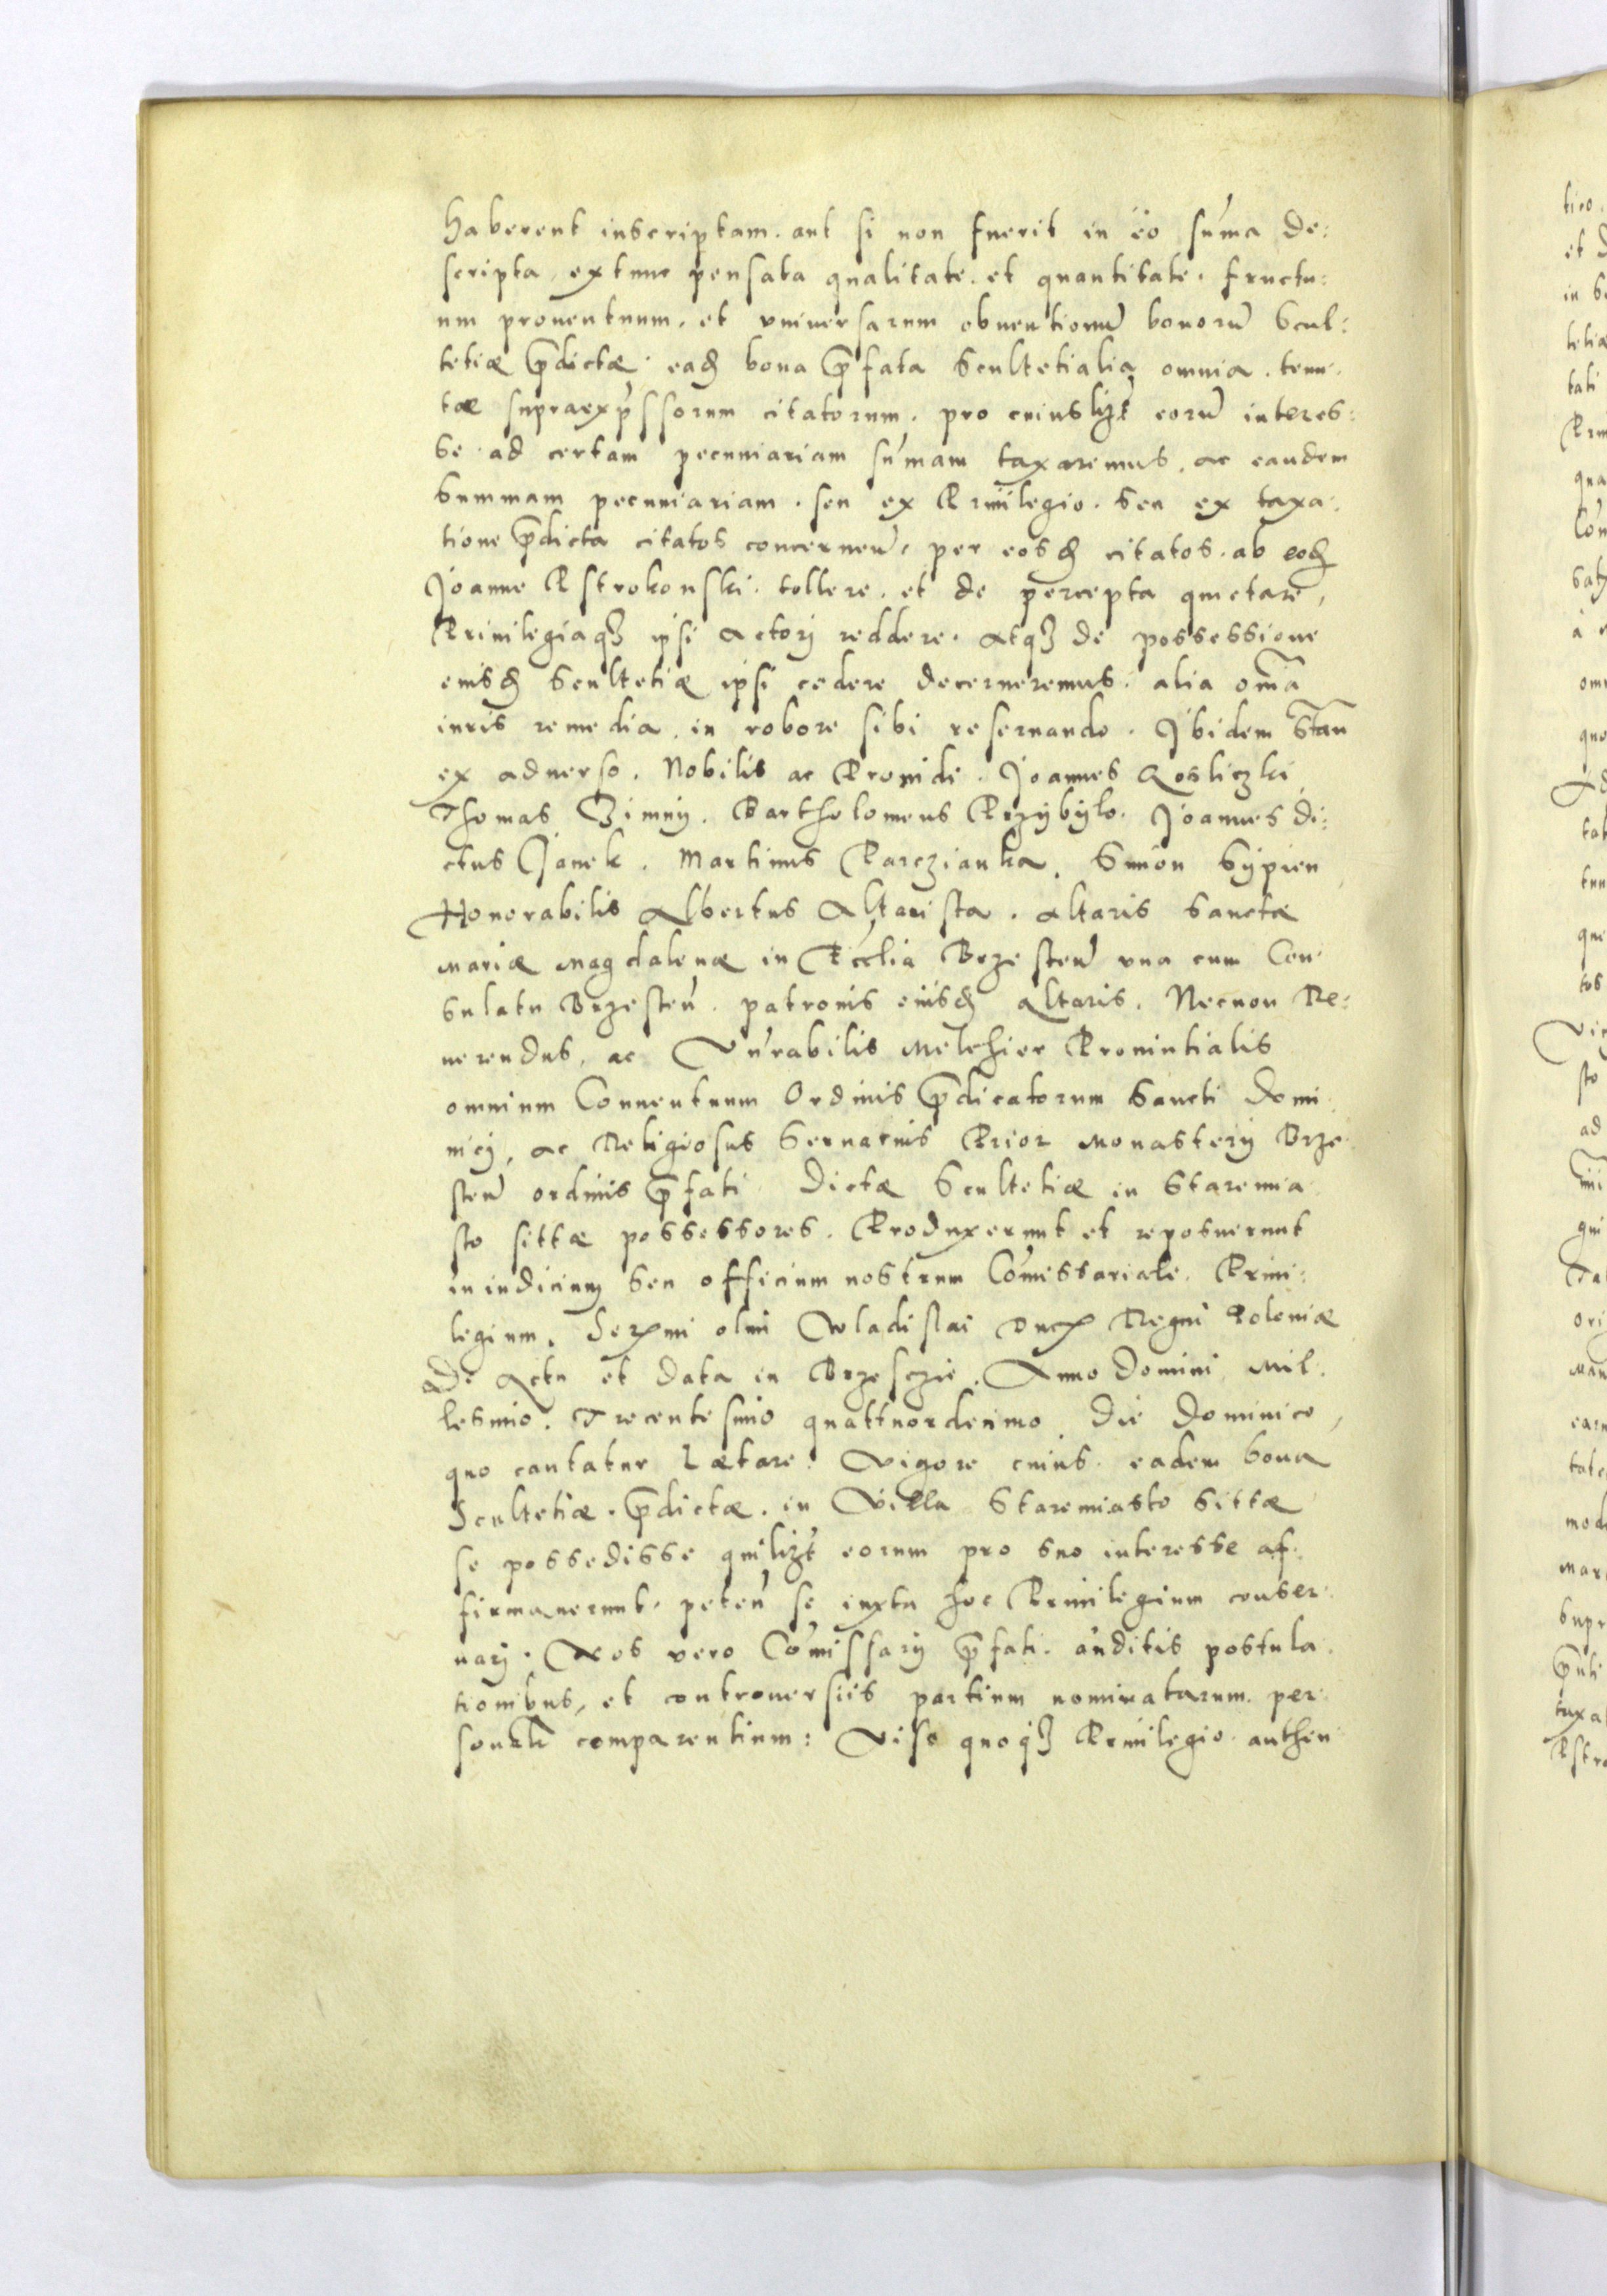 haberent inscriptam. aut si non fuerit in eo suma de:
scripta, extunc pensata qualitate. et quantitate. fructu:
um prouentuum, et vniuersarum obuentionu bonoru Scul:
tetiæ pdictæ. ead bona pfata Scultetialia omnia. tenu
tæ supraexpssorum citatorum. pro cuiuslizt eoru interes:
se. ad certam pecuniariam sumam taxaremus. ac eandem
summam pecuniariam. seu ex Priuilegio. seu ex taxa:
tione pdicta citatos concernen, per eosd citatos. ab eod
Joanne Pstrokonski. tollere. et de percepta quietare,
Priuilegiaqz ipsi actorj reddere. atqz de possessione
eiusd Scultetiæ ipsi cedere decerneremus. alia oma
iuris remedia, in robore sibi reseruando. Jbidem Stan
ex aduerso. Nobilis ac Prouidi. Joannes Kosliczki
Thomas Zimny. Bartholomeus Przÿbÿlo. Joannes di:
ctus Janek. Martinus Parczianka. Simon Sÿpien
Honorabilis Albertus Altarista. altaris Sanctæ
Mariæ Magdalenæ in Ecclia Brzesten vna cum Con
sulatu Brzesten. patronis eiusd altaris. Necnon Re:
uerendus, ac Vnrabilis Melchior Prouintialis
omnium Conuentuum Ordinis pdicatorum Sancti Domi
nicj, ac Religiosus Seruacius Prior Monasterij Brze
sten ordinis pfati. Dictæ Scultetiæ in Staremia
sto sittæ possessores. Produxerunt et reposuerunt
in iudicium seu officium nostrum Comissariale. Priui:
legium. Serxmi olim Wladislai Ducx Regni Poloniæ
de Actu et data in Brzesczie. Anno Domini Mil
lesmio. Trecentesimo quattuordecimo die Dominico,
quo cantatur Lætare. Vigore cuius. eadem bona
Scultetiæ. pdictæ. in Villa Staremiasto sittæ
se possedisse quilizt eorum pro suo interesse af:
firmauerunt. peten se iuxta hoc Priuilegium conser
uarj. Nos vero Comissarij pfati. auditis postula
tionibus, et controuersiis partium nominatarum. per
sonalr comparentium: Viso quoqz Priuilegio authen